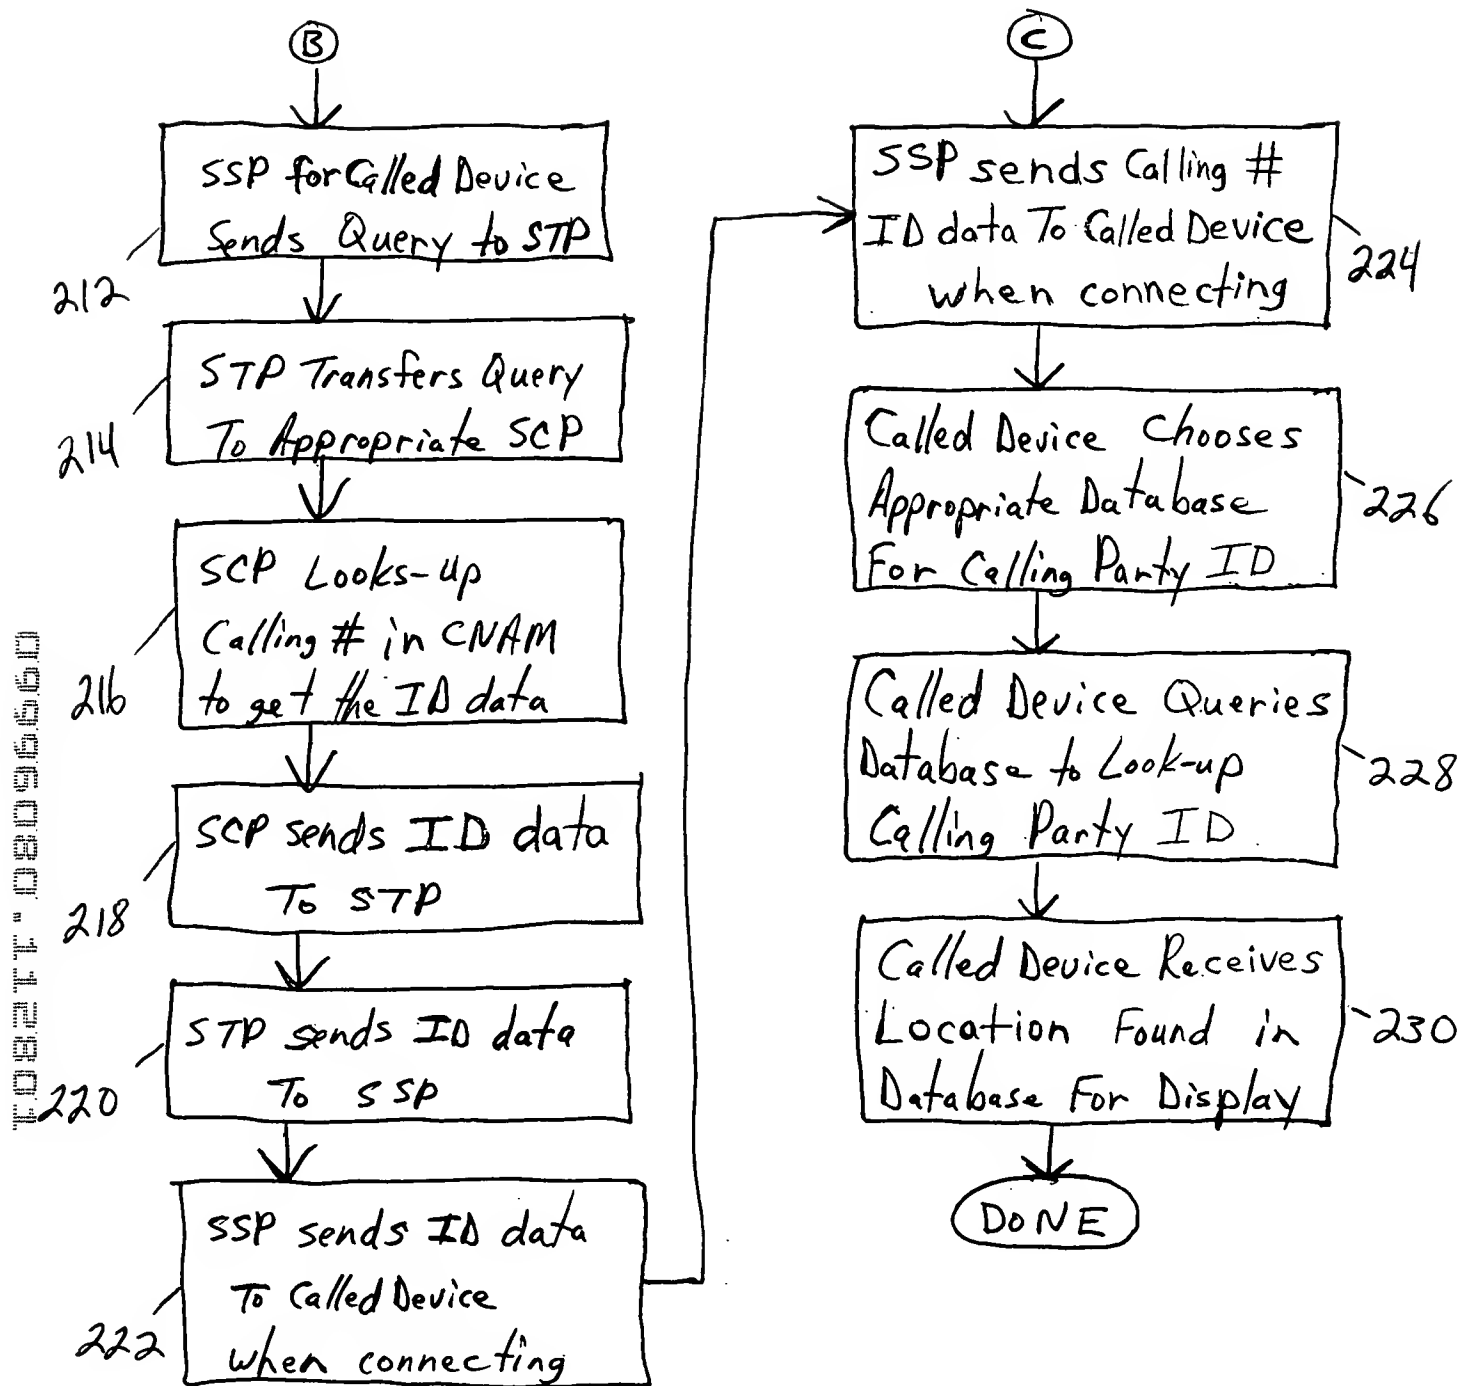 B
SSP for Called Device
Sends Query to STP
212
STP Transfers Query
To Appropriate SCP
214
SCP Looks-up
Calling # in CNAM
to get the ID data
216
SCP sends ID data
To STP
218
STP sends ID data
To SSP
220
SSP sends ID data
To Called Device
when connecting
222
C
SSP sends Calling #
ID data To Called Device
when connecting
224
Called Device Chooses
Appropriate Database
For Calling Party ID
226
Called Device Queries
Database to Look-up
Calling Party ID
228
Called Device Receives
Location Found in
Database For Display
230
DONE
09996080.112801